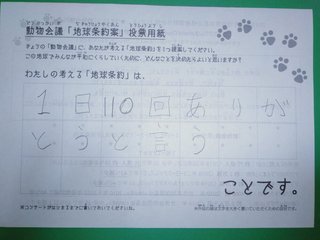 動物会議「地球条約案」投票用紙
きょうの「動物会議」に、あなたが考える「地球条約」を1つ提案してください。
この地球でみんなが平和にくらしていくために、どんなことを決めたらよいと思いますか?
わたしの考える「地球条約」は、
1日110回ありが
とうと言う
ことです。